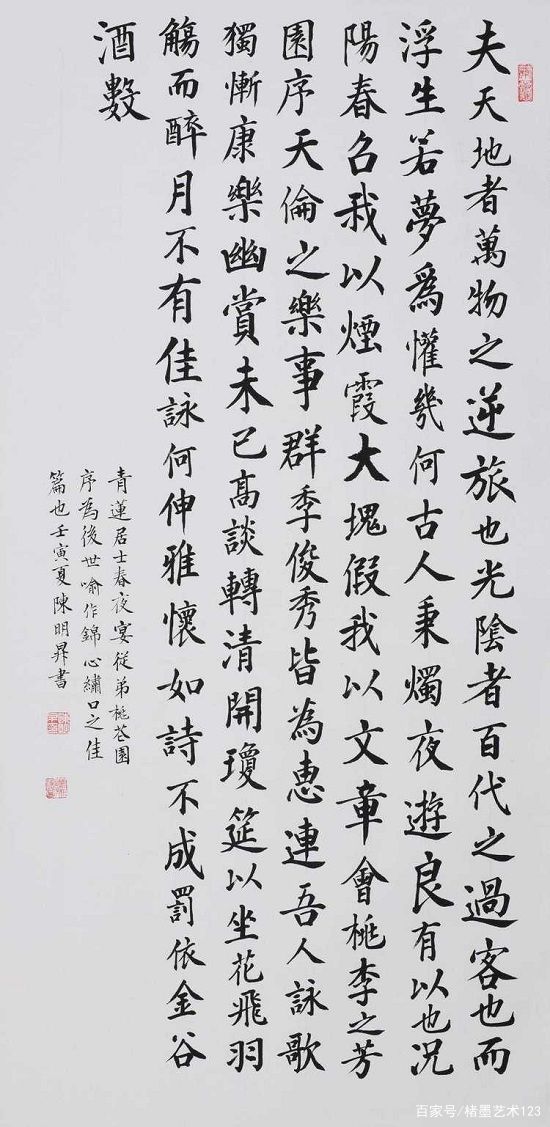 夫天地者萬物之逆旅也光陰者百代之過客也而
浮生若夢爲懽幾何古人秉燭夜遊良有以也況
陽春召我以煙霞大塊假我以文章會桃李之芳
園序天倫之樂事群季俊秀皆為惠連吾人詠歌
獨慚康樂幽賞未已高談轉清開瓊筵以坐花飛羽
觴而醉月不有佳詠何伸雅懷如詩不成罰依金谷
酒數
青蓮居士春夜宴從弟桃花園
序為後世喻作錦心繡口之佳
篇也壬寅夏陳明昇書
百家号/楮墨艺术123